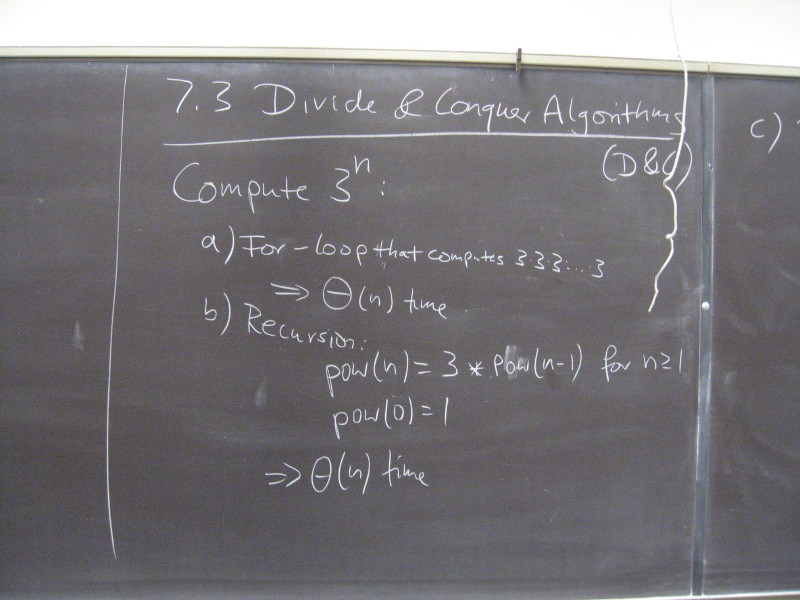 7.3 Divide & Conquer Algorithms
(D&C)
Compute 3ⁿ:
a) For-loop that computes 3·3·3·...·3
⇒ Θ(n) time
b) Recursion:
pow(n) = 3 * pow(n-1) for n≥1
pow(0) = 1
⇒ Θ(n) time
c)